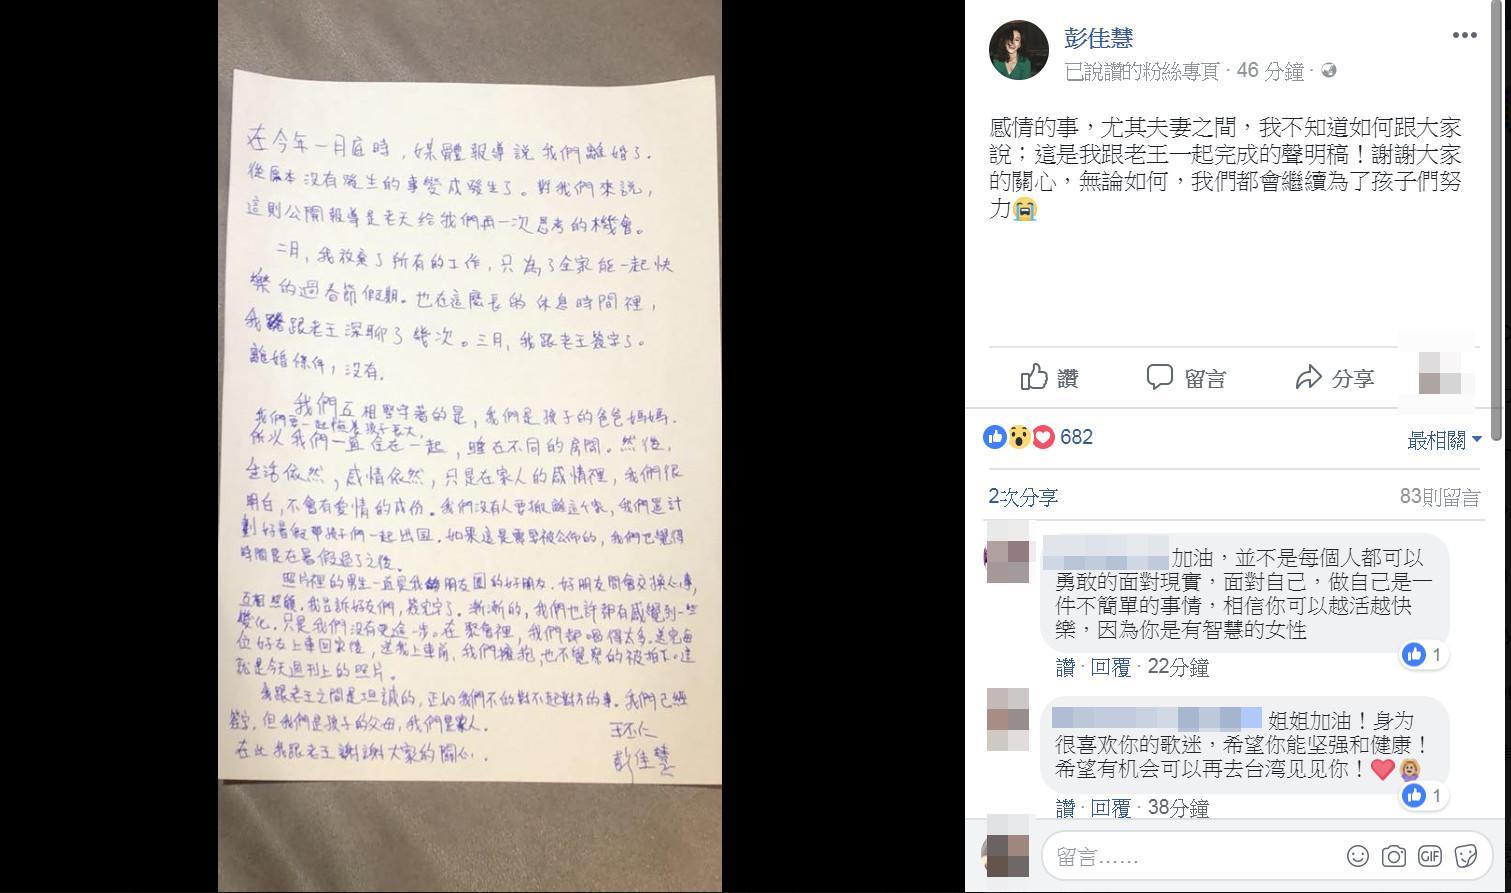 在今年一月底時，媒體報導說我們離婚了．
從原本沒有發生的事變成發生了。對我們來說，
這則公開報導是老天給我們再一次思考的機會。
二月，我放棄了所有的工作，只為了全家能一起快
樂的過春節假期。也在這麼長的休息時間裡，
我跟老王深聊了幾次。三月，我跟老王簽字了。
離婚條件，沒有．
我們互相堅守著的是，我們是孩子的爸爸媽媽．
我們要一起陪著孩子長大，
所以我們一直住在一起，睡在不同的房間。然後，
生活依然，感情依然，只是在家人的感情裡，我們很
明白，不會有愛情的成份。我們沒有人要搬離這個家，我們還計
劃好暑假帶孩子們一起出國．如果這是需要被公佈的，我們也覺得
時間是在暑假過了之後。
照片裡的男生一直是我朋友圈的好朋友．好朋友間會交換心事，
互相照顧．我告訴好友們，簽完字了．漸漸的，我們也許都有感覺到一些
變化．只是我們沒有更進一步。在聚會裡，我們都喝得太多．送完每
位好友上車回家後，送我上車前，我們擁抱，也不覺察的被拍下．這
就是今天週刊上的照片。
我跟老王之間是坦誠的，正如我們不做對不起對方的事．我們已經
簽字，但我們是孩子的父母，我們是家人．
王丕仁
在此我跟老王謝謝大家的關心．
彭佳慧
彭佳慧
已說讚的粉絲專頁 · 46 分鐘 ·
感情的事，尤其夫妻之間，我不知道如何跟大家
說；這是我跟老王一起完成的聲明稿！謝謝大家
的關心，無論如何，我們都會繼續為了孩子們努
力😭
讚 留言 分享
682 最相關
2次分享 83則留言
加油，並不是每個人都可以
勇敢的面對現實，面對自己，做自己是一
件不簡單的事情，相信你可以越活越快
樂，因為你是有智慧的女性
1
讚 · 回覆 · 22分鐘
姐姐加油！身为
很喜欢你的歌迷，希望你能坚强和健康！
希望有机会可以再去台湾见见你！❤️🙆🏼
1
讚 · 回覆 · 38分鐘
留言...... GIF